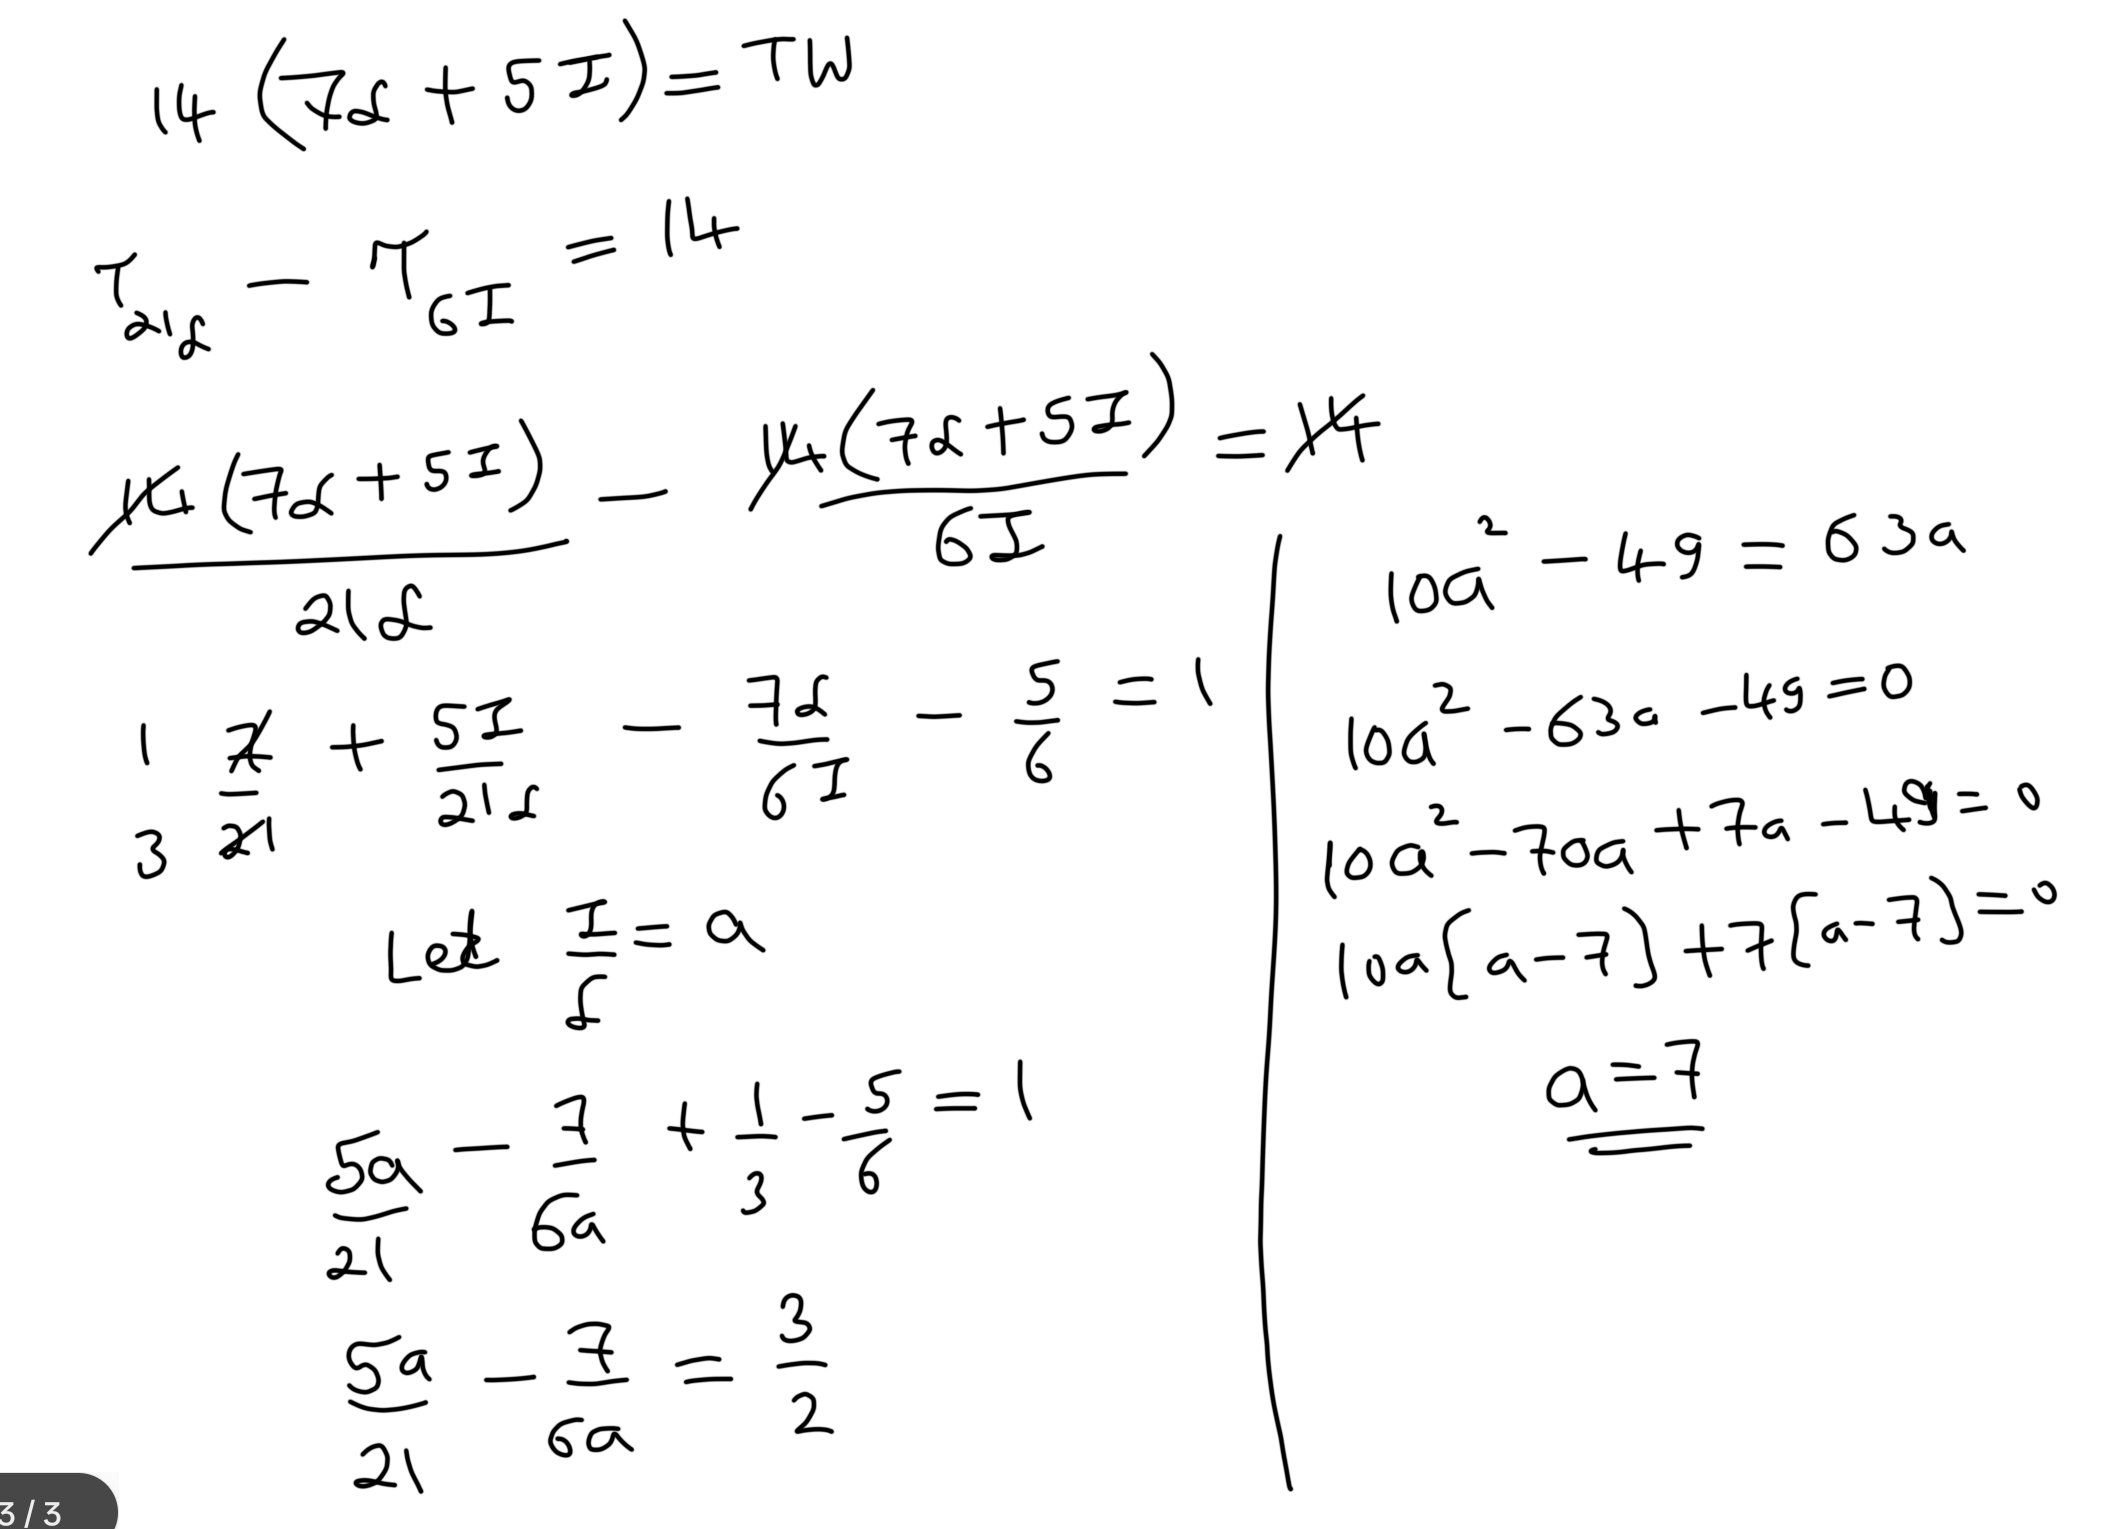 14 (7L + 5I) = TW
T21L - T6I = 14
14(7L + 5I)/21L - 14(7L + 5I)/6I = 14
1/3 7/21 + 5I/21L - 7L/6I - 5/6 = 1
Let I/L = a
5a/21 - 7/6a + 1/3 - 5/6 = 1
5a/21 - 7/6a = 3/2
10a² - 49 = 63a
10a² - 63a - 49 = 0
10a² - 70a + 7a - 49 = 0
10a[a - 7] + 7[a - 7] = 0
a = 7
3 / 3